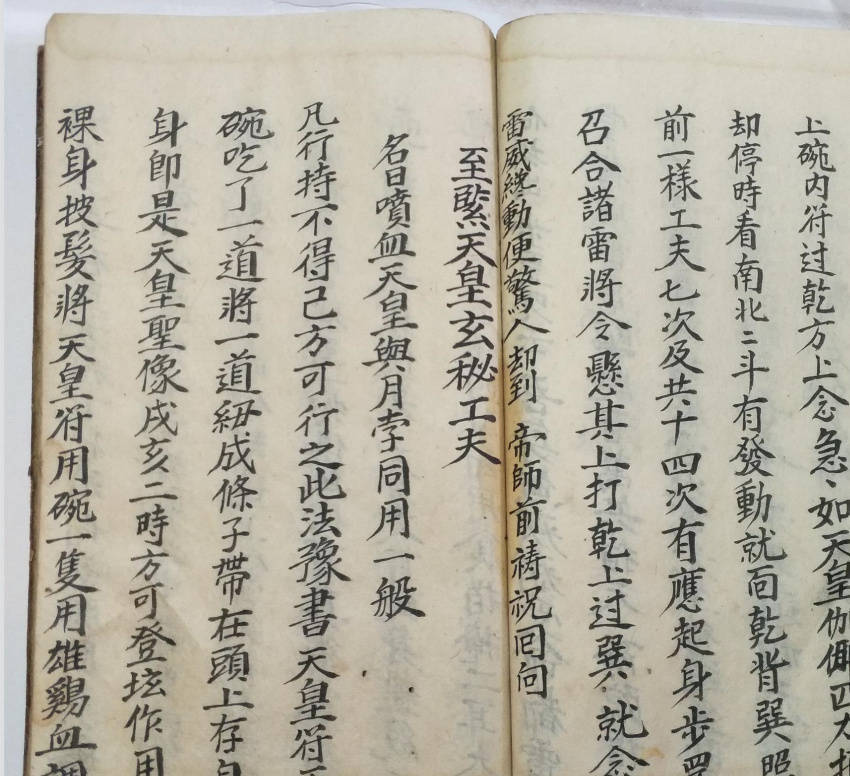 上碗内符过乾方上念急〻如天皇伽㑋四大
却停時看南北二斗有發動就面乾背巽照
前一様工夫七次及共十四次有應起身步罡
召合諸雷將令懸其上打乾上过巽就念
雷威纔動便驚人却到 帝師前祷祝回向
至緊天皇玄秘工夫
名曰噴血天皇與月孛同用一般
凡行持不得已方可行之此法豫書天皇符
碗吃了一道將一道紐成條子帶在頭上存
身即是天皇聖像戌亥二時方可登坛作用
裸身披髮將天皇符用碗一隻用雄鷄血調